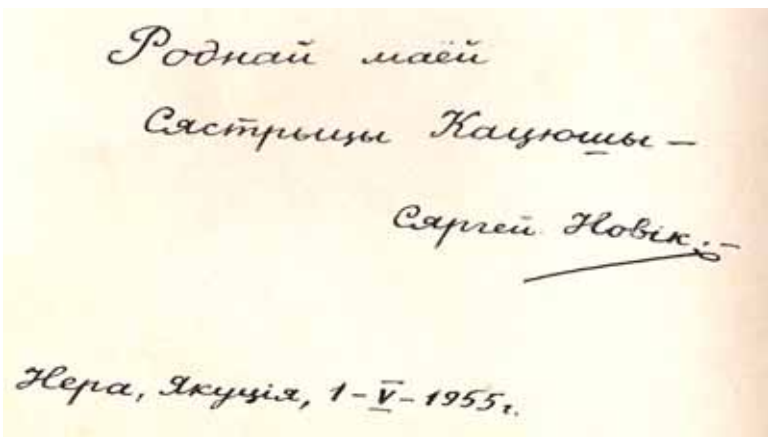 Роднай маёй
Сястрыцы Кацюшы –
Сяргей Новік.–
Нера, Якуція, 1-V-1955г.